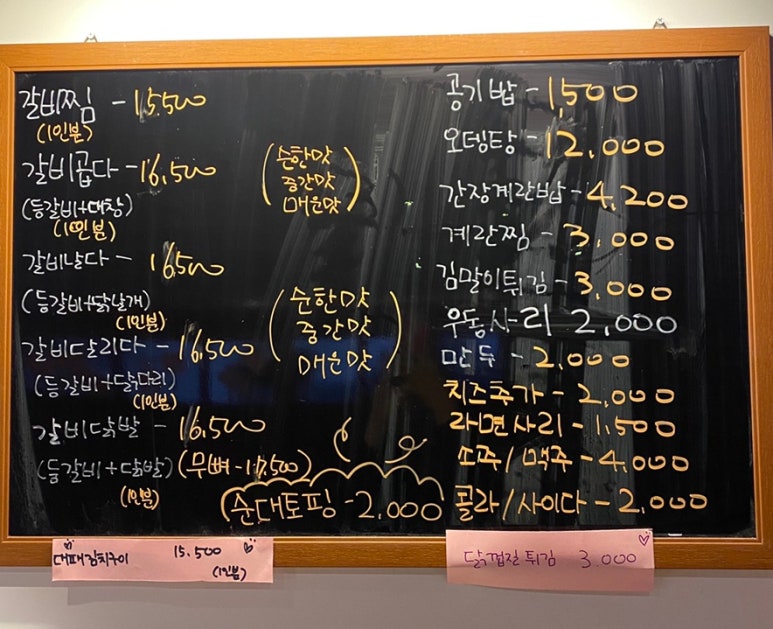 갈비찜 - 15,500
(1인분)
갈비곱다 - 16,500
(등갈비+대창)
(1인분)
(순한맛
중간맛
매운맛)
갈비날다 - 16,500
(등갈비+닭날개)
(1인분)
갈비달리다 - 16,500
(등갈비+닭다리)
(1인분)
(순한맛
중간맛
매운맛)
갈비닭발 - 16,500
(등갈비+닭발) (무뼈-17,500)
(1인분)
순대토핑 - 2.000
공기밥 - 1,500
오뎅탕 - 12.000
간장계란밥 - 4.200
계란찜 - 3.000
김말이튀김 - 3,000
우동사리 2,000
만두 - 2.000
치즈추가 - 2,000
라면사리 - 1.500
소주/맥주 - 4,000
콜라/사이다 - 2.000
대패김치구이 15.500
(1인분)
닭껍질튀김 3.000